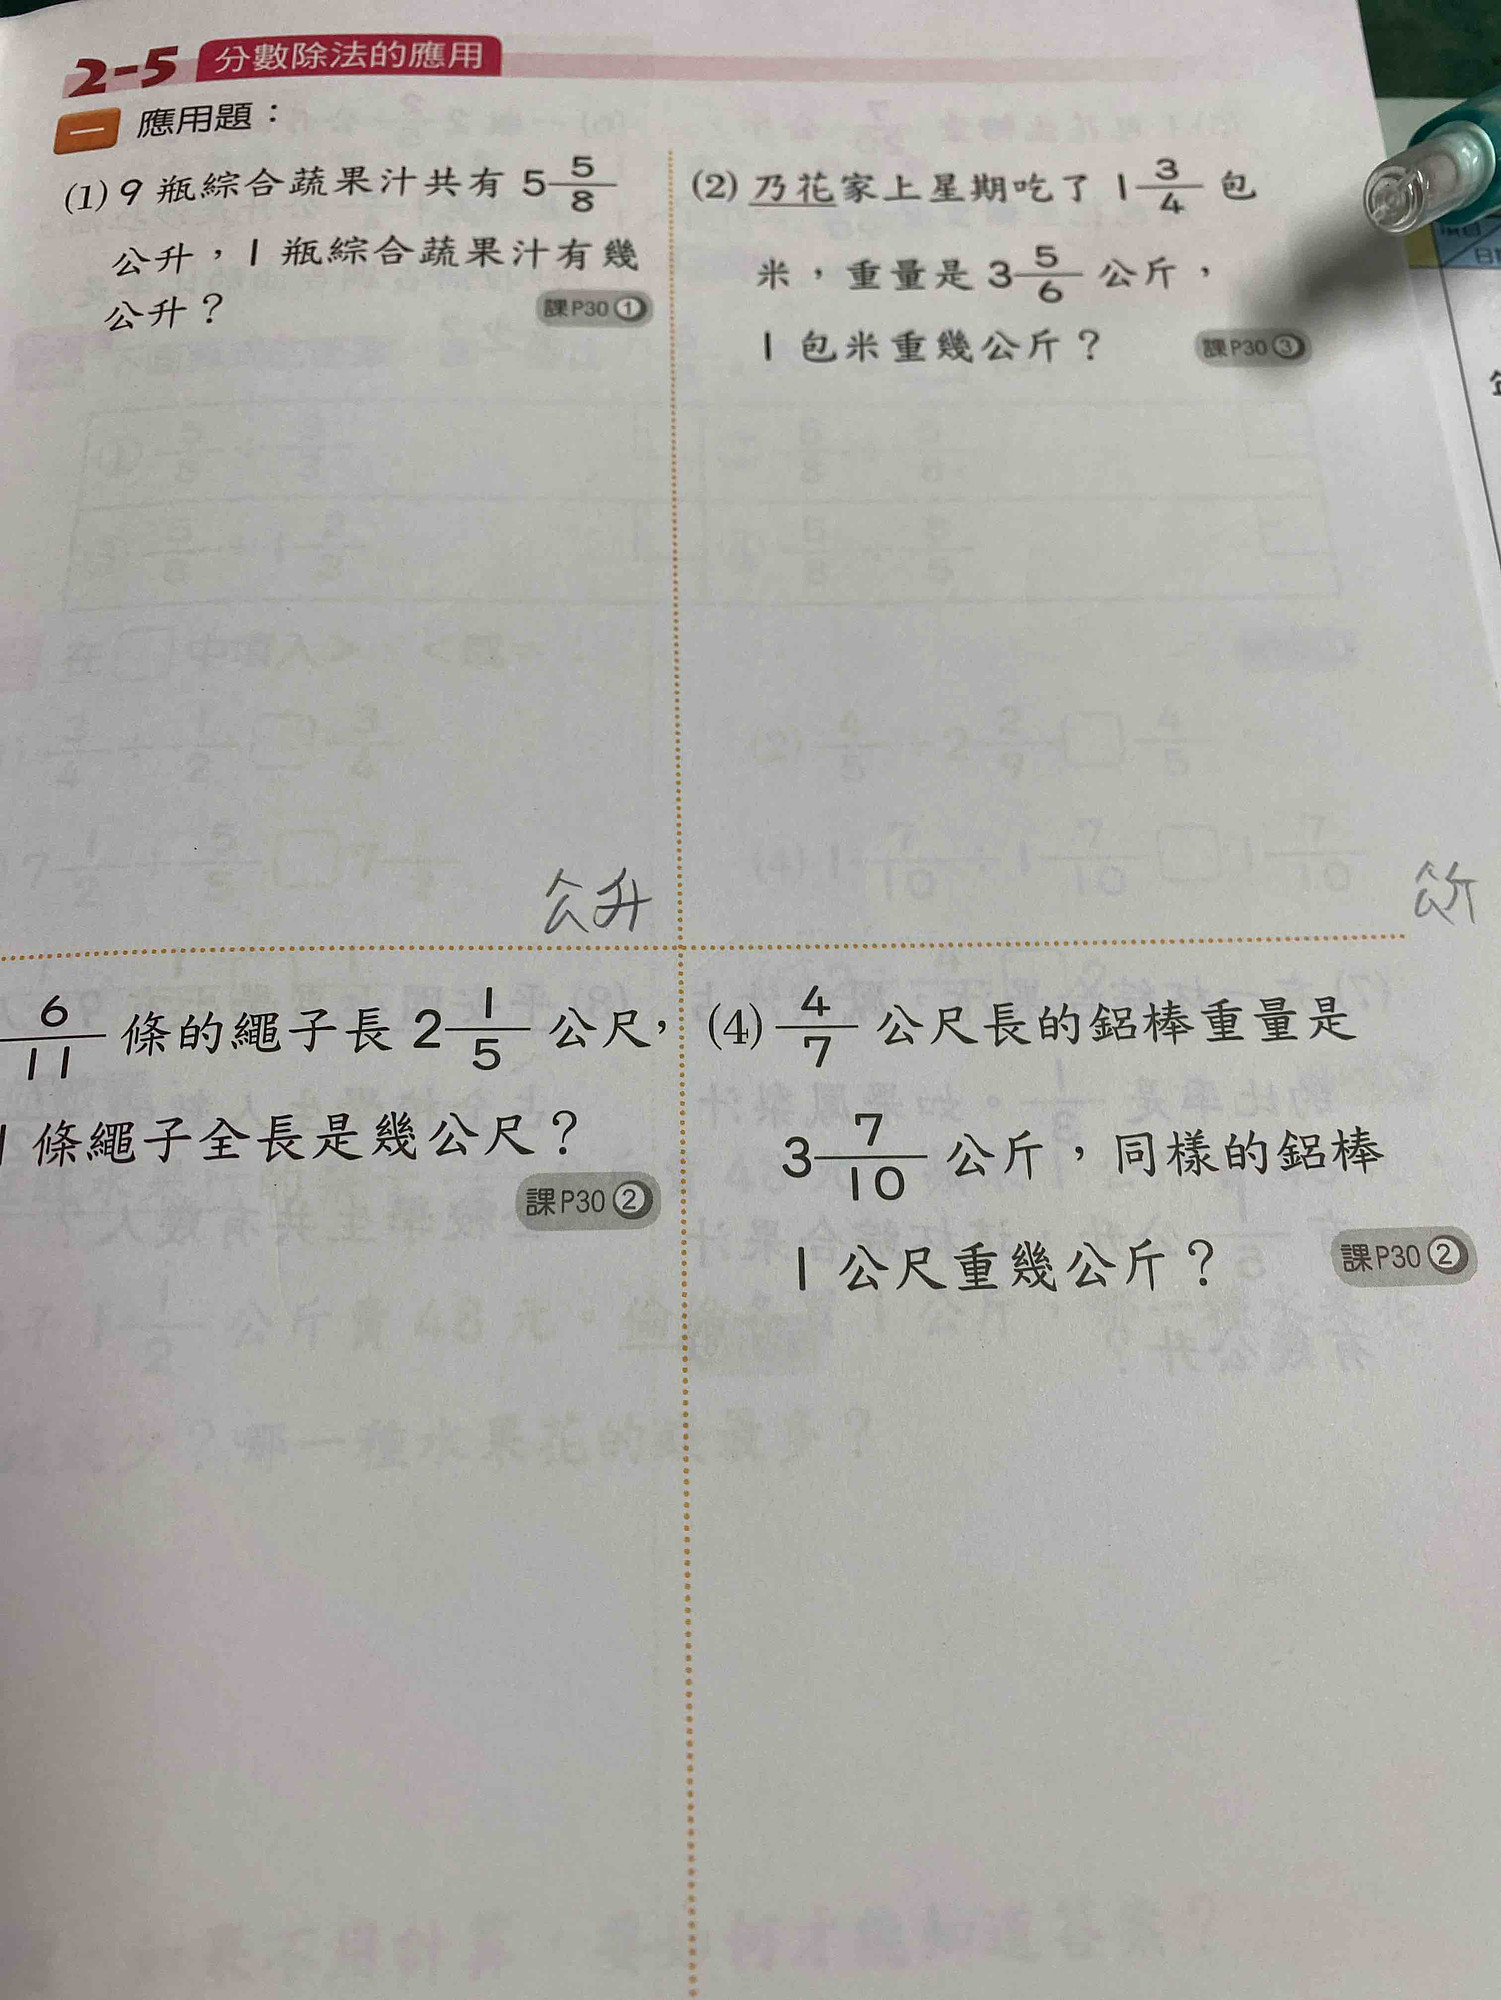 2-5 分數除法的應用
一 應用題：
(1) 9 瓶綜合蔬果汁共有 5 5/8
公升，1 瓶綜合蔬果汁有幾
公升？ 課P30 ①
(2) 乃花家上星期吃了 1 3/4 包
米，重量是 3 5/6 公斤，
1 包米重幾公斤？ 課P30 ③
公升
公斤
6/11 條的繩子長 2 1/5 公尺，
1 條繩子全長是幾公尺？
課P30 ②
(4) 4/7 公尺長的鋁棒重量是
3 7/10 公斤，同樣的鋁棒
1 公尺重幾公斤？ 課P30 ②